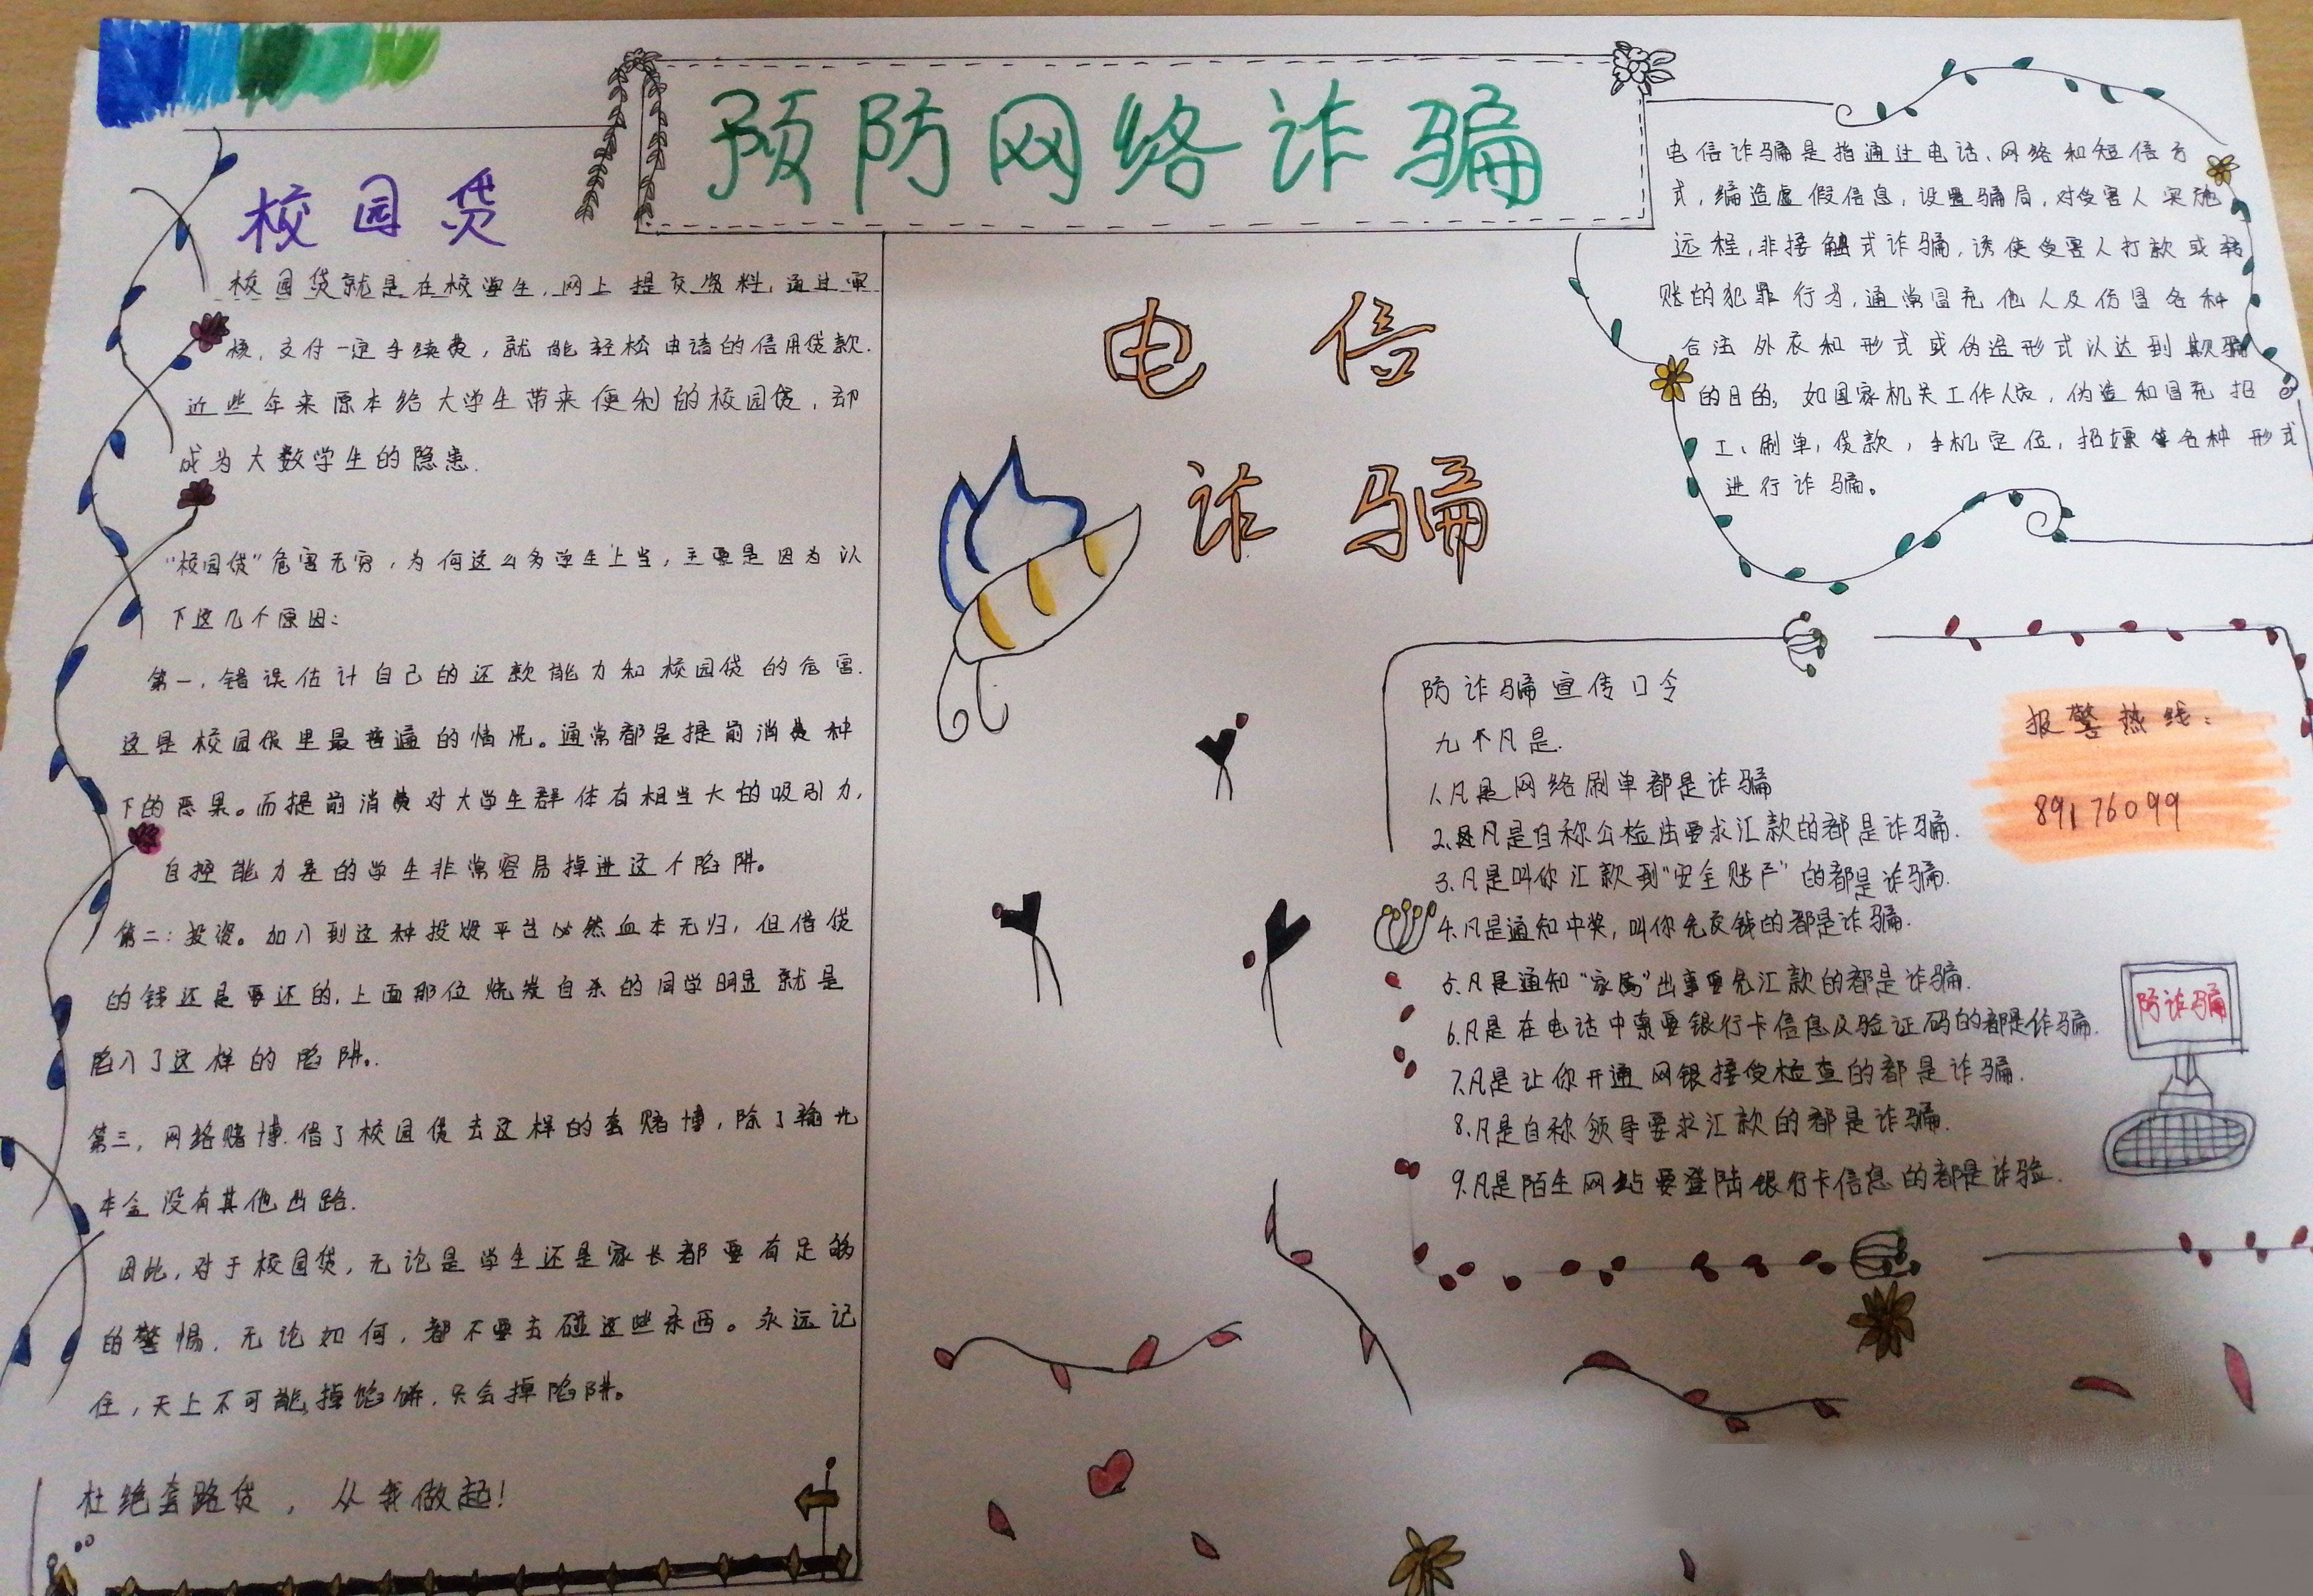 预防网络诈骗
校园贷
校园贷就是在校学生,网上提交资料,通过审
核,支付一定手续费,就能轻松申请的信用贷款.
近些年来原本给大学生带来便利的校园贷,却
成为大数学生的隐患.
"校园贷"危害无穷,为何这么多学生上当,主要是因为以
下这几个原因:
第一,错误估计自己的还款能力和校园贷的危害.
这是校园贷里最普遍的情况。通常都是提前消费种
下的恶果。而提前消费对大学生群体有相当大的吸引力,
自控能力差的学生非常容易掉进这个陷阱。
第二:投资。加入到这种投资平台必然血本无归,但借贷
的钱还是要还的,上面那位烧炭自杀的同学明显就是
陷入了这样的陷阱。
第三,网络赌博.借了校园贷去这样的套赌博,除了输光
本金没有其他出路.
因此,对于校园贷,无论是学生还是家长都要有足够
的警惕,无论如何,都不要去碰这些东西。永远记
住,天上不可能掉馅饼,只会掉陷阱。
杜绝套路贷,从我做起!
电信
诈骗
电信诈骗是指通过电话、网络和短信方
式,编造虚假信息,设置骗局,对受害人实施
远程,非接触式诈骗,诱使受害人打款或转
账的犯罪行为,通常冒充他人及仿冒各种
合法外衣和形式或伪造形式以达到欺骗
的目的,如国家机关工作人员,伪造和冒充招
工、刷单,贷款,手机定位,招嫖等各种形式
进行诈骗。
防诈骗宣传口令
九个凡是.
1.凡是网络刷单都是诈骗
2.凡是自称公检法要求汇款的都是诈骗.
3.凡是叫你汇款到"安全账户"的都是诈骗.
4.凡是通知中奖,叫你先交钱的都是诈骗.
5.凡是通知"家属"出事要先汇款的都是诈骗.
6.凡是在电话中索要银行卡信息及验证码的都是诈骗.
7.凡是让你开通网银接受检查的都是诈骗.
8.凡是自称领导要求汇款的都是诈骗.
9.凡是陌生网站要登陆银行卡信息的都是诈验.
报警热线:
89176099
防诈骗